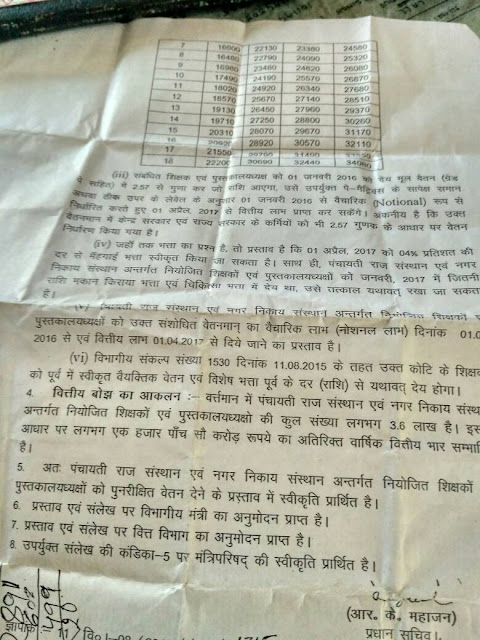 7 16000 22130 23380 24580
8 16480 22790 24090 25320
9 16980 23460 24820 26080
10 17490 24190 25570 26870
11 18020 24920 26340 27680
12 18570 25670 27140 28510
13 19130 26450 27960 29370
14 19710 27250 28800 30260
15 20310 28070 29670 31170
16 28920 30570 32110
17 21550
18 22200 30690 32440 34080
(iii) संबंधित शिक्षक एवं पुस्तकालयध्यक्ष को 01 जनवरी 2016 को देय मूल वेतन (ग्रेड
पे सहित) में 2.57 से गुणा कर जो राशि आएगा, उसे उपर्युक्त पे–मैट्रिक्स के सापेक्ष समान
अथवा ठीक उपर के लेवेल के अनुसार 01 जनवरी 2016 से वैचारिक (Notional) रूप से
निर्धारित करते हुए 01 अप्रैल, 2017 से वित्तीय लाभ प्राप्त कर सकेंगे। अंकनीय है कि उक्त
वेतनमान में केन्द्र सरकार एवं राज्य सरकार के कर्मियों को भी 2.57 गुणक के आधार पर वेतन
निर्धारण किया गया है।
(iv) जहाँ तक भत्ता का प्रश्न है, तो प्रस्ताव है कि 01 अप्रैल, 2017 को 04% प्रतिशत की
दर से मँहगाई भत्ता स्वीकृत किया जा सकता है। साथ ही, पंचायती राज संस्थान एवं नगर
निकाय संस्थान अन्तर्गत नियोजित शिक्षकों एवं पुस्तकालयध्यक्षों को जनवरी, 2017 में जितनी
राशि मकान किराया भत्ता एवं चिकित्सा भत्ता में देय था, उसे तत्काल यथावत् रखा जा सकता
है।
(v) राज संस्थान एवं नगर निकाय संस्थान अन्तर्गत नियोजित शिक्षकों
पुस्तकालयध्यक्षों को उक्त संशोधित वेतनमान् का वैचारिक लाभ (नोशनल लाभ) दिनांक 01.0
2016 से एवं वित्तीय लाभ 01.04.2017 से दिये जाने का प्रस्ताव है।
(vi) विभागीय संकल्प संख्या 1530 दिनांक 11.08.2015 के तहत उक्त कोटि के शिक्षक
को पूर्व में स्वीकृत वैयक्तिक वेतन एवं विशेष भत्ता पूर्व के दर (राशि) से यथावत् देय होगा।
4. वित्तीय बोझ का आकलन :– वर्त्तमान में पंचायती राज संस्थान एवं नगर निकाय संस्थ
अन्तर्गत नियोजित शिक्षकों एवं पुस्तकालयध्यक्षों की कुल संख्या लगभग 3.6 लाख है। इस
आधार पर लगभग एक हजार पाँच सौ करोड़ रूपये का अतिरिक्त वार्षिक वित्तीय भार सम्भावि
है।
5. अतः पंचायती राज संस्थान एवं नगर निकाय संस्थान अन्तर्गत नियोजित शिक्षकों
पुस्तकालयध्यक्षों को पुनरीक्षित वेतन देने के प्रस्ताव में स्वीकृति प्रार्थित है।
6. प्रस्ताव एवं संलेख पर विभागीय मंत्री का अनुमोदन प्राप्त है।
7. प्रस्ताव एवं संलेख पर वित्त विभाग का अनुमोदन प्राप्त है।
8. उपर्युक्त संलेख की कंडिका–5 पर मंत्रिपरिषद् की स्वीकृति प्रार्थित है।
(आर. के. महाजन)
प्रधान सचिव।
ज्ञापांक